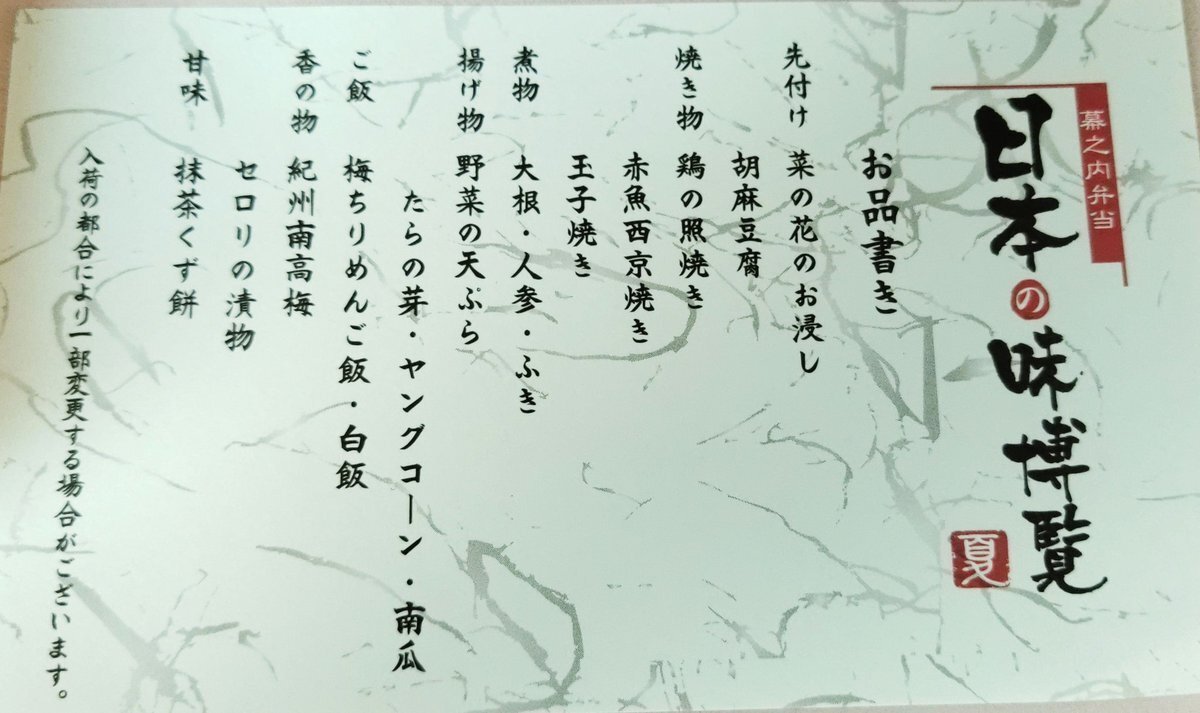 幕之内弁当
日本の味博覧
夏
お品書き
先付け 菜の花のお浸し
胡麻豆腐
焼き物 鶏の照焼き
赤魚西京焼き
玉子焼き
煮物 大根・人参・ふき
揚げ物 野菜の天ぷら
たらの芽・ヤングコーン・南瓜
ご飯 梅ちりめんご飯・白飯
香の物 紀州南高梅
セロリの漬物
甘味 抹茶くず餅
入荷の都合により一部変更する場合がございます。